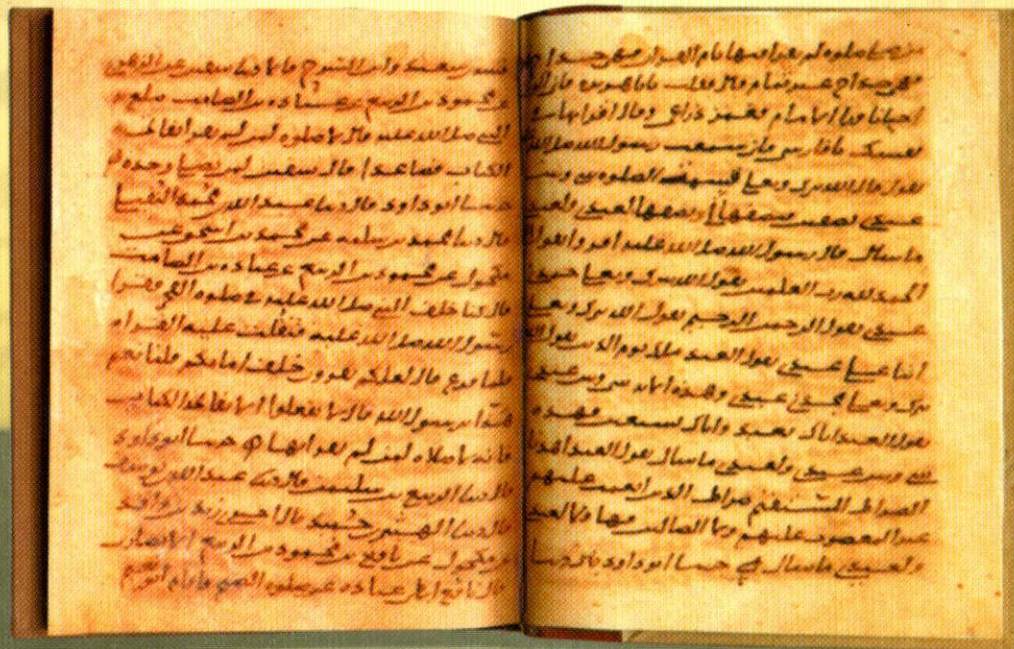 من صلى صلوه لم يقرا فيها بام القران فهي خداج
فهي خداج غير تمام قال فقلت يابا هريره فاني
احيانا ورا الامام فغمز ذراعي وقال اقرا بها في
نفسك يا فارسي فاني سمعت رسول الله صلى الله
يقول قال الله تبرك وتعلى قسمت الصلوه بيني وبين
عبدي نصفين فنصفها لي ونصفها لعبدي ولعبدي
ما سال قال رسول الله صلى الله عليه اقروا يقول
الحمد لله رب العلمين يقول الله تبرك وتعلى حمدني
عبدي يقول الرحمن الرحيم يقول الله تبرك وتعلى
اثنا علي عبدي يقول العبد ملك يوم الدين يقول الله
تبرك وتعلى مجدني عبدي وهذه الايه بيني وبين عبدي
يقول العبد اياك نعبد واياك نستعين فهذه
بيني وبين عبدي ولعبدي ما سال يقول العبد اهدنا
الصراط المستقيم صراط الذين انعمت عليهم
غير المغضوب عليهم ولا الضالين فهاولا لعبدي
ولعبدي ما سال حدثنا ابو داود
قتيبه بن سعيد وابن السرح قالا حدثنا سفين عن الزهري
عن محمود بن الربيع عن عباده بن الصامت يبلغ به
النبي صلى الله عليه قال لا صلوه لمن لم يقرا بفاتحه
الكتاب فصاعدا قال سفين لمن يصلي وحده
حدثنا ابو داود قال حدثنا عبد الله بن محمد النفيلي
قال حدثنا محمد بن سلمه عن محمد بن اسحق عن
مكحول عن محمود بن الربيع عن عباده بن الصامت
قال كنا خلف النبي صلى الله عليه في صلوه الفجر فقرا
رسول الله صلى الله عليه فثقلت عليه القراه
فلما فرغ قال لعلكم تقرون خلف امامكم قلنا نعم
هذا يرسول الله قال لا تفعلوا الا بفاتحه الكتاب
فانه لا صلاه لمن لم يقرا بها حدثنا ابو داود
قال حدثنا الربيع بن سليمن قال حدثنا عبد الله بن يوسف
قال حدثنا الهيثم بن حميد قال اخبرني زيد بن واقد
عن مكحول عن نافع بن محمود بن الربيع الانصاري
قال نافع ابطا عباده عن صلوه الصبح فاقام ابو نعيم